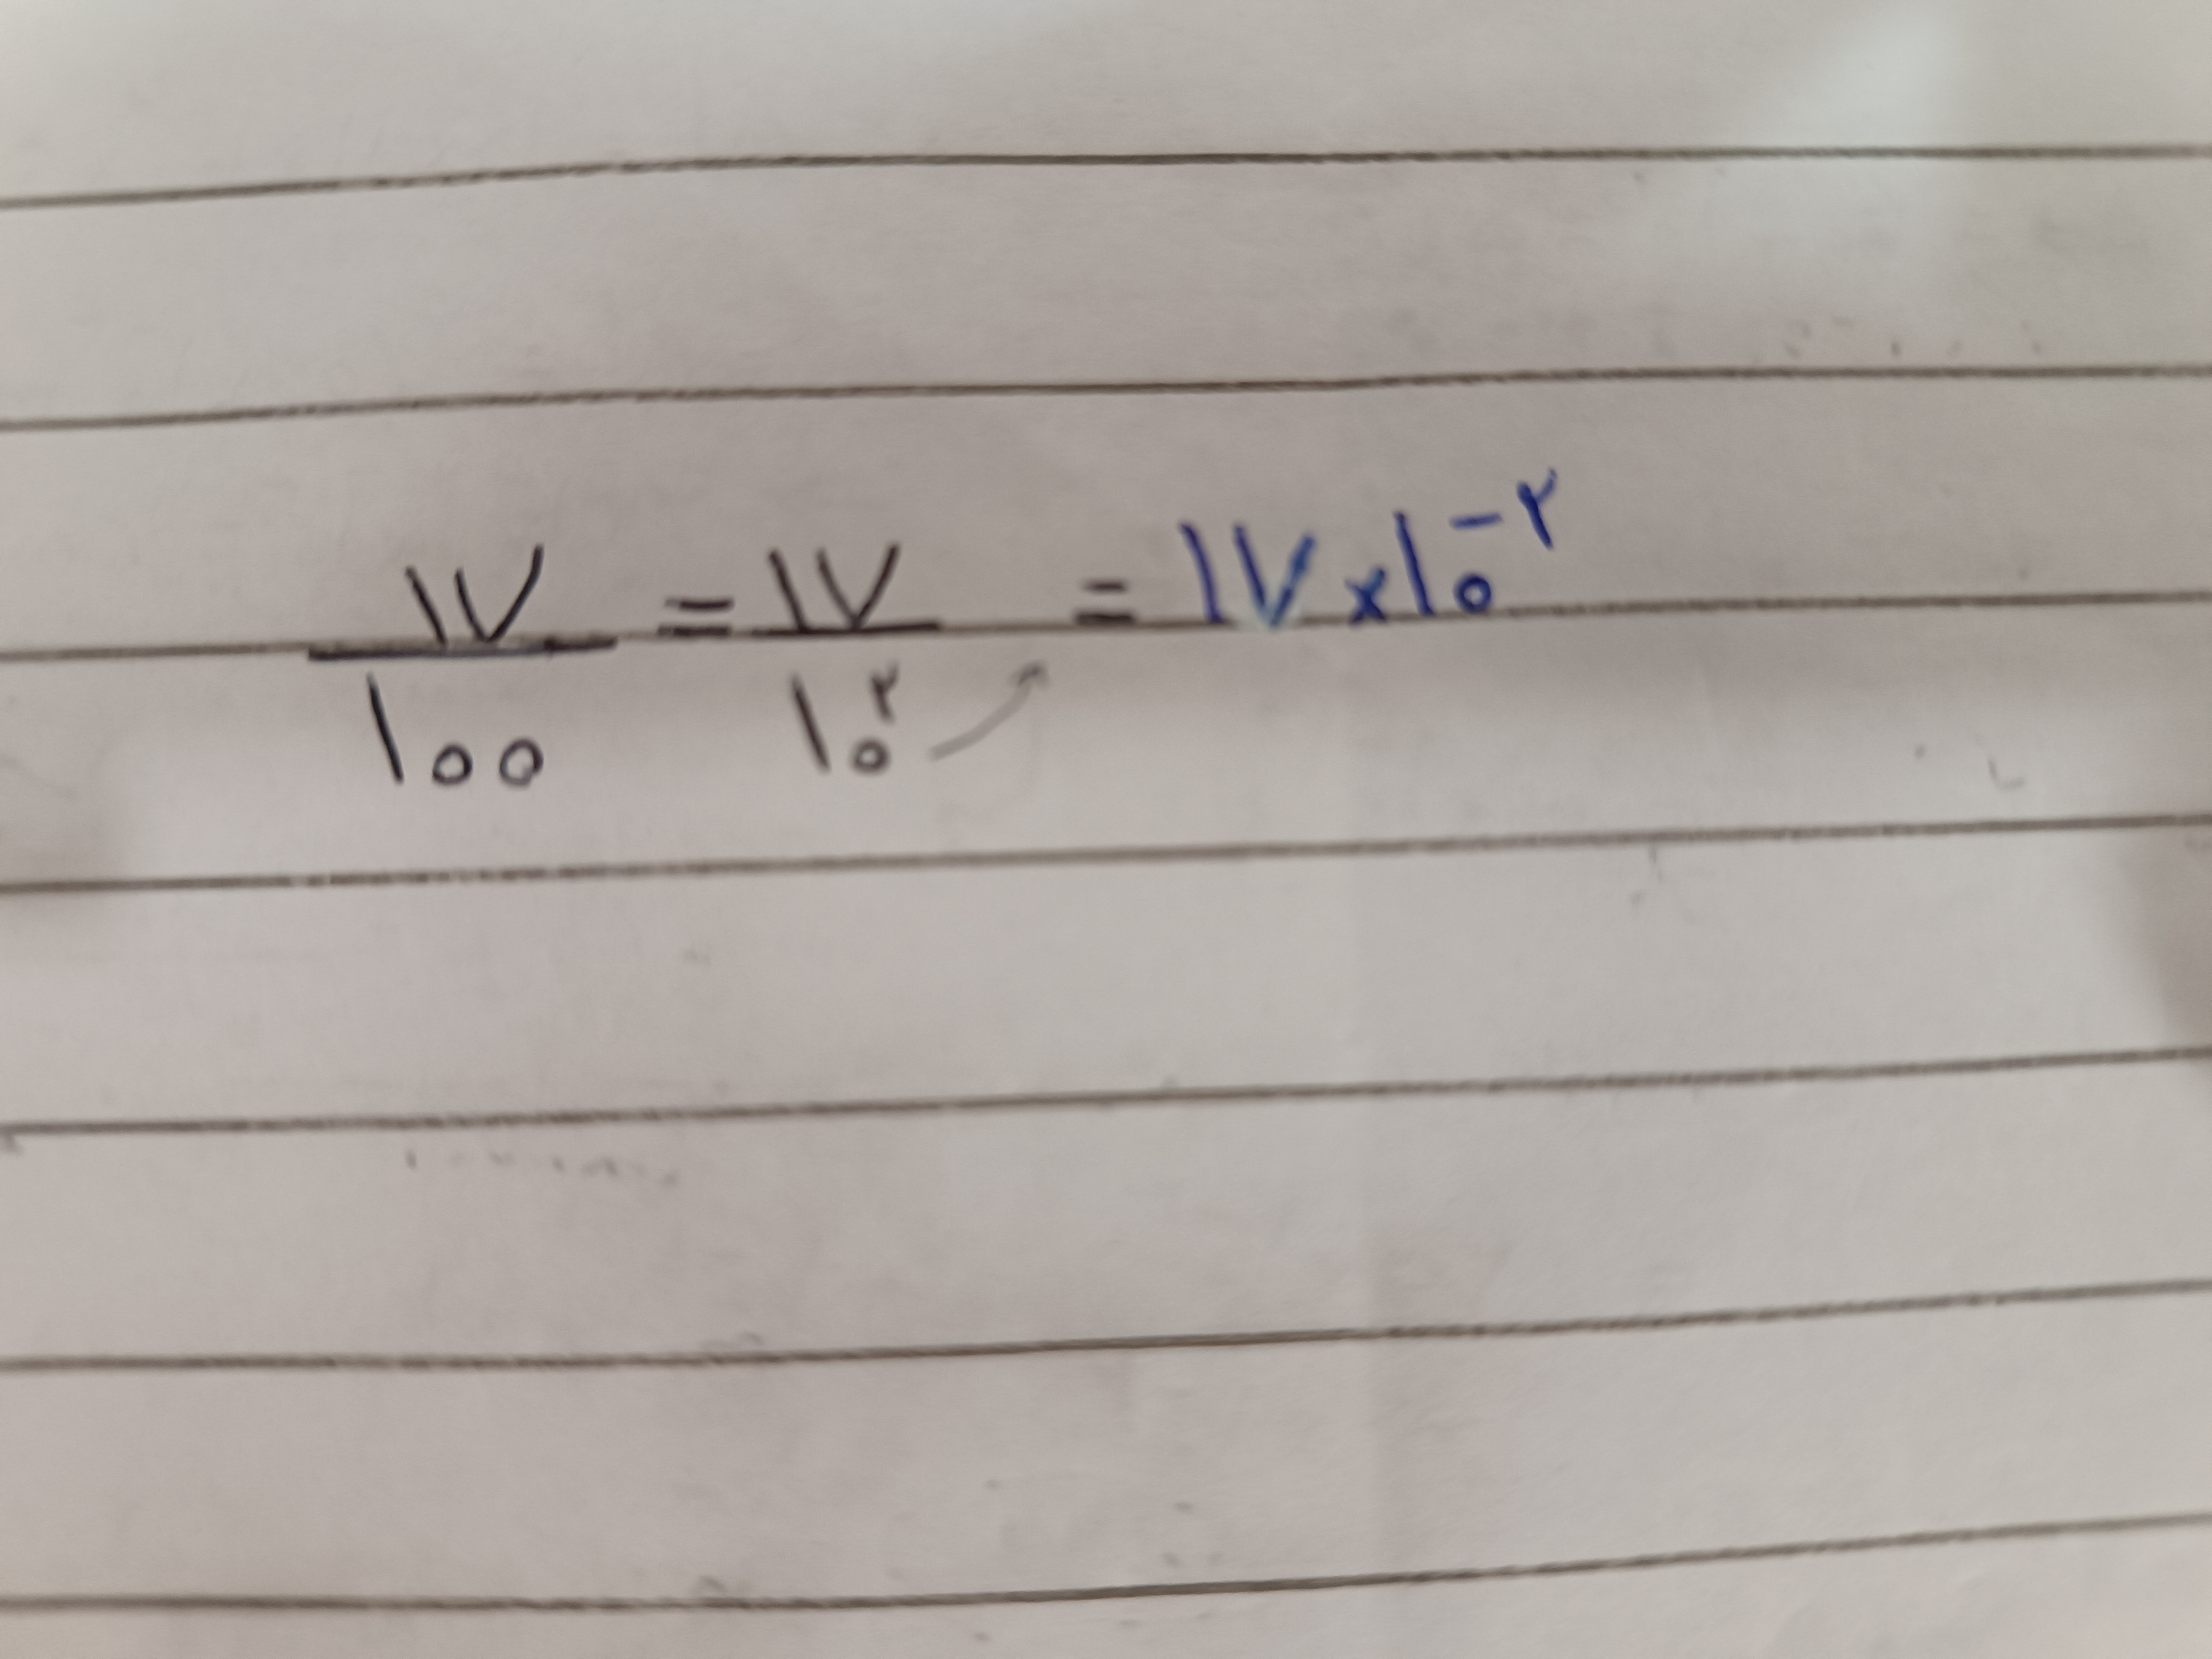 ۱۷/۱۰۰ = ۱۷/۱۰^۲ = ۱۷×۱۰^-۲